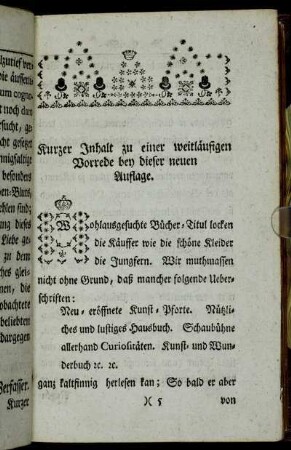 lzutief ver-
die äussern
um cogno-
t noch dar-
esucht, ge-
cht gesetzt
nnigfaltige
besonders
en-Bluts,
hlen sind;
ung dieses
Liebe ge-
zu dem
ches glei-
nen, die
obachtete
beliebten
dargegen
Verfasser.
Kurzer
Kurzer Inhalt zu einer weitläufigen
Vorrede bey dieser neuen
Auflage.
Wohlausgesuchte Bücher-Titul locken
die Käuffer wie die schöne Kleider
die Jungfern. Wir muthmassen
nicht ohne Grund, daß mancher folgende Ueber-
schriften:
Neu-eröffnete Kunst-Pforte. Nützli-
ches und lustiges Hausbuch. Schaubühne
allerhand Curiositäten. Kunst- und Wun-
derbuch ꝛc. ꝛc.
ganz kaltsinnig herlesen kan; So bald er aber
)( 5 von